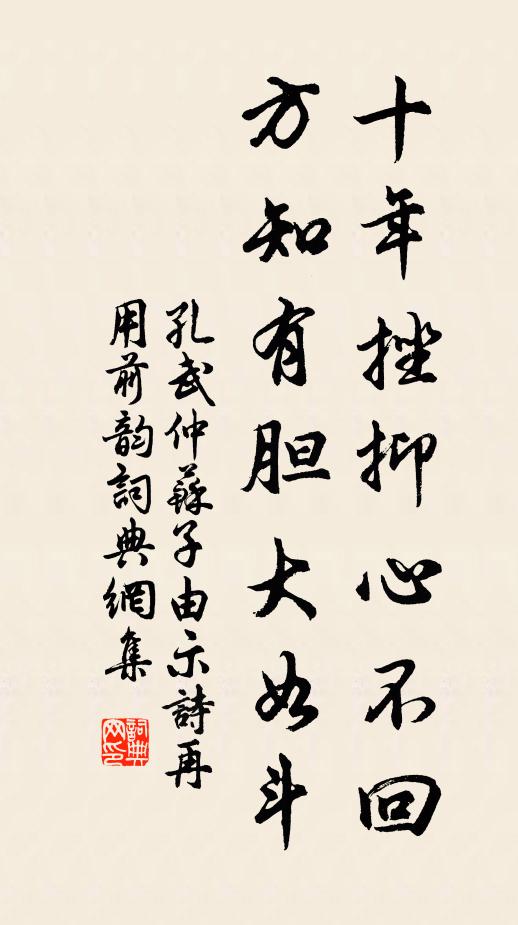 十年挫抑心不回
方知有胆大如斗
孔武仲蘇子由示詩再
用前韵詞典網集
詞典网印